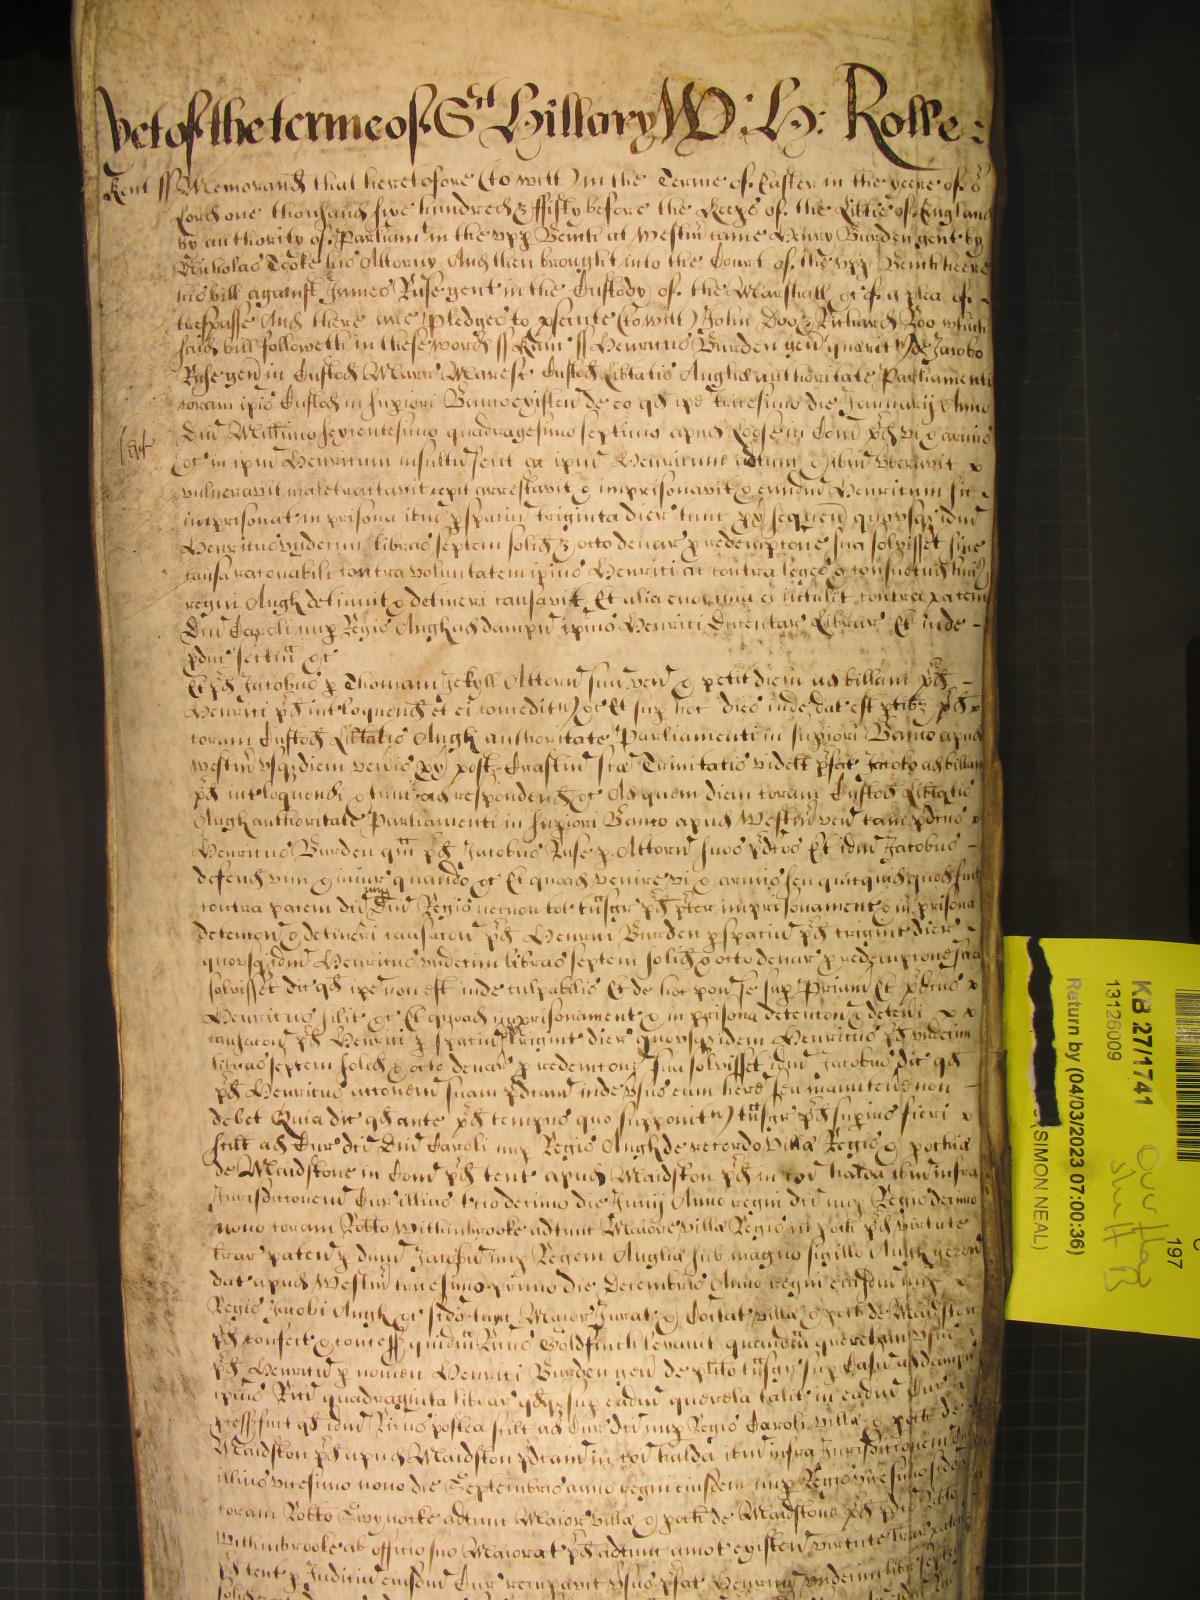 Yet of the terme of St Hillary W: H: Rolle:
Kent ss Memorand that heretofore (to witt) in the Terme of Easter in the yeere of
Lord one thousand sixe hundred & ffifty before the Keeps of the Libtie of England
by authority of Parliamt in the vpp Bench at Westmr came Henry Burden gent by
Nicholas Tooke his Attorny And then brought into the Court of the vpp Bench heere
his bill against James Ruse gent in the Custody of the Marshall &c of a plea of
trespasse And there are pledges to psecute (to witt) John Doo & Richard Roo which
said bill followeth in these words ss Kanc ss Henricus Burden gen querit de Jacobo
Ruse gen in Custod Marr Maresc Custod Libtatis Angliæ authoritate Parliamenti
coram ipis Custod in supiori Banco existen de eo qd ipe tricesimo die Januarij Anno
Dni Millimo sexcentesimo quadragesimo septimo apud Loose in Com pd vi & armis
&c in ipm Henricum insultu fecit et ipm Henricum adtunc & ibm vberavit
vulneravit maletractavit cepit arrestavit & imprisonavit & eundm Henricum sic
imprisonat in prisona ibm p spatiu triginta dier tunc px sequen quousq idm
Henricus vndecim libras septem solid & octo denar p redemptone sua solvisset sine
causa racionabili contra voluntatem ipius Henrici ac contra leges & consuetud huius
regni Angl detinuit & detineri causavit Et alia enormia ei intulit contra pacem
Dni Caroli nup Regis Angl ad dampnu ipius Henrici Ducentar Librar Et inde
pduc sectam &c
Et pd Jacobus p Thomam Jekyll Attorn suu ven & petit diem ad billam pd
Henrici pd intloquend et ei conceditr &c Et sup hoc dies inde dat est ptibz pd
coram Custod Libtatis Angl authoritate Parliamenti in supiori Banco apud
Westmr vsqz diem venis px post Crastin sce Trinitatis videlt pfat Jacobo ad billam
pd intloquendi & tunc ad respondend &c Ad quem diem coram Custod Libtatis
Angl authoritate Parliamenti in supiori Banco apud Westmr ven tam pdcus
Henricus Burden qm pd Jacobus Ruse p Attorn suos pdcos Et idm Jacobus
defend vim & iniur quando &c Et quoad venire vi & armis seu quicquid quod sit
contra pacem dci Dni nup Regis necnon tot tnsgr pd pter imprisonament & in prisona
detencon & detineri causacon pd Henrici Burden p spatiu pd trigint dier
quousqz idm Henricus vndecim libras septem solid & octo denar p redempcione sua
solvisset dic qd ipe non est inde culpabilis Et de hoc pon se sup Priam Et pdcus
Henricus silit &c Et quoad imprisonament & in prisona detencon & deteri
causacon pd Henrici p spatiu trigint dier quousqz idem Henricus pd vndecim
libras septem solid & octo denar p redemcone sua solvisset idm Jacobus dic qd
pd Henricus accionem suam pdcam inde vsus eum here seu manutenere non
debet Quia dic qd ante pd tempus quo supponitr tnsgr pd supius fieri
scilt ad Cur dci Dni Caroli nup Regis Angl de recordo villæ Regis & pochiæ
de Maidstone in Com pd tent apud Maidston pd in coi aula ibm infra
Jurisdiccionem Cur illius tricodecimo die Junij Anno regni dci nup Regis decimo
nono coram Robto Withinbrooke adtunc Maiore villæ Regis & poch pd virtute
trar paten p dnm Jacobum nup Regem Angliæ sub magno sigillo Angl geren
dat apud Westmr tricesimo primo die Decembris Anno regni eiusdm nup
Regis Jacobi Angl &c sedo tunc Maior Jurat & Coitat villæ & poch de Maidston
pd confect & concess quidm Ricus Goldfinch levavit quandm querelam vsus
pd Henricu p nomen Henrici Burden gen de plito tnsgr sup Casu ad dampn
ipius Rici quadraginta librar qdqz sup eadm querela talit in eadm Cur
pcess fuit qd idm Ricus postea scilt ad Cur dci nup Regis Caroli villæ & poch de
Maidston pd apud Maidston pdcam in coi aula ibm infra Jurisdiccionem Cur
illius vicesimo nono die Septembris anno regni eiusdem nup Regis vicesimo sedo
coram Robto Swynocke adtunc Maior villæ & poch de Maidstone pd
Withinbrooke ab officio suo Maiorat pd adtunc amot existen virtute trar paten
pd tent p Judiciu eiusdm Cur recupavit vsus pfat Henricu vndecim libr septe
KB 27/1741
13126009
Return by (04/03/2023 07:00:36)
(SIMON NEAL)
197